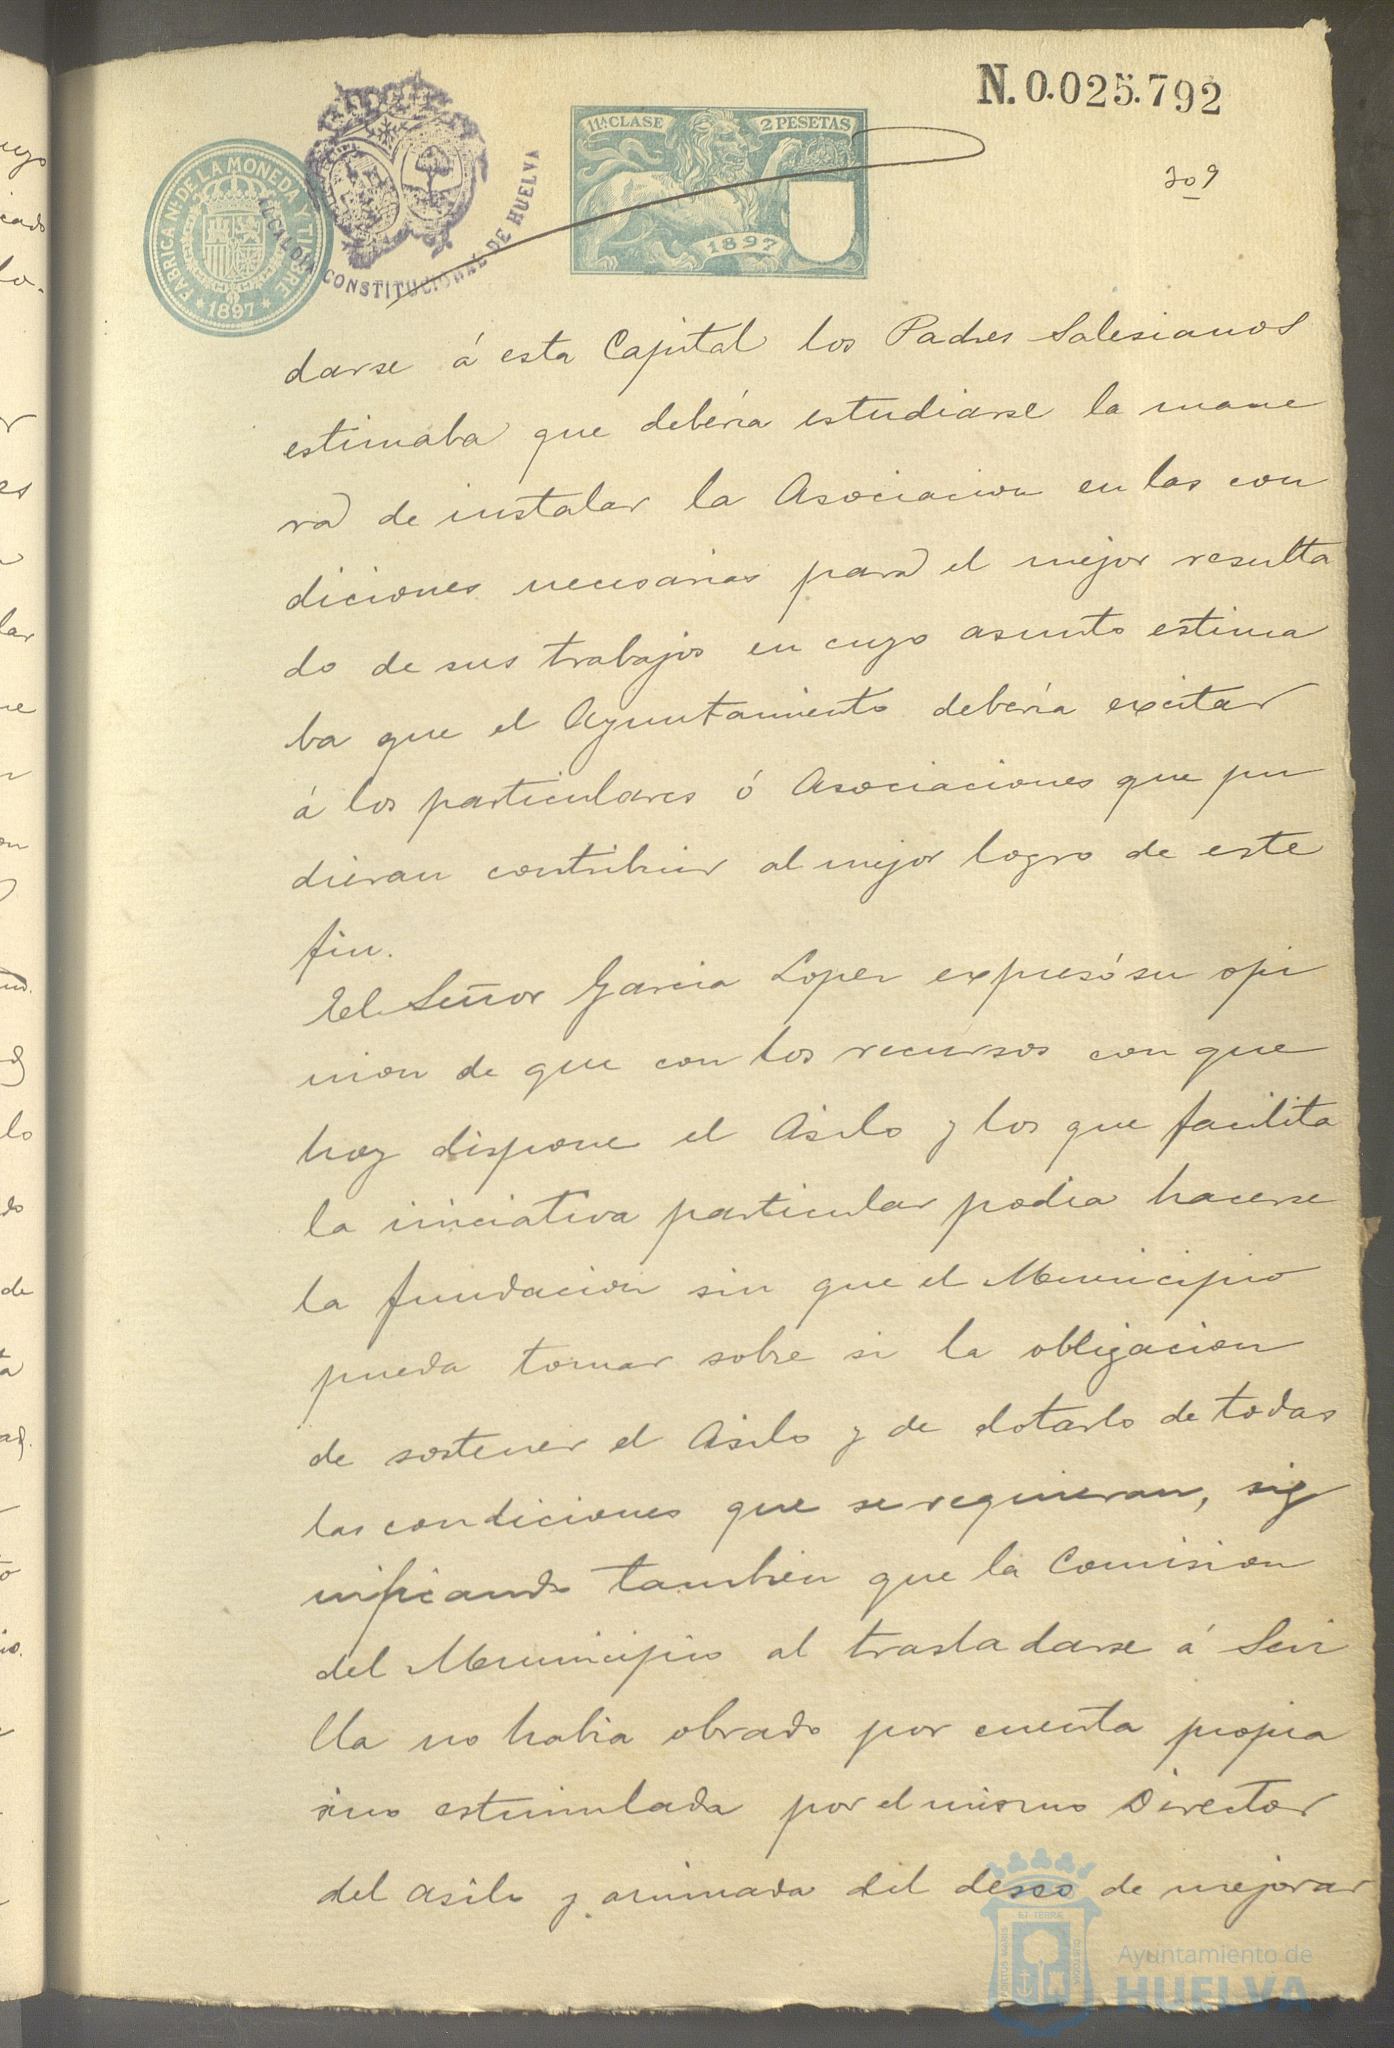 N. 0.025.792
11ª CLASE 2 PESETAS
1897
FABRICA Nˡ DE LA MONEDA Y TIMBRE
* 1897 *
ALCALDIA CONSTITUCIONAL DE HUELVA
309
darse á esta Capital los Padres Salesianos
estimaba que debería estudiarse la mane
ra de instalar la Asociacion en las con
diciones necesarias para el mejor resulta
do de sus trabajos en cuyo asunto estima
ba que el Ayuntamiento debería excitar
á los particulares ó Asociaciones que pu
dieran contribuir al mejor logro de este
fin.
El Señor Garcia Lopez expresó su opi
nion de que con los recursos con que
hoy dispone el Asilo y los que facilita
la iniciativa particular podia hacerse
la fundacion sin que el Municipio
pueda tomar sobre si la obligacion
de sostener el Asilo y de dotarlo de todas
las condiciones que se requieran, sig
nificando tambien que la Comision
del Municipio al trasladarse á Sevi
lla no habia obrado por cuenta propia
sino estimulada por el mismo Director
del asilo y animada del deseo de mejorar
Ayuntamiento de
HUELVA